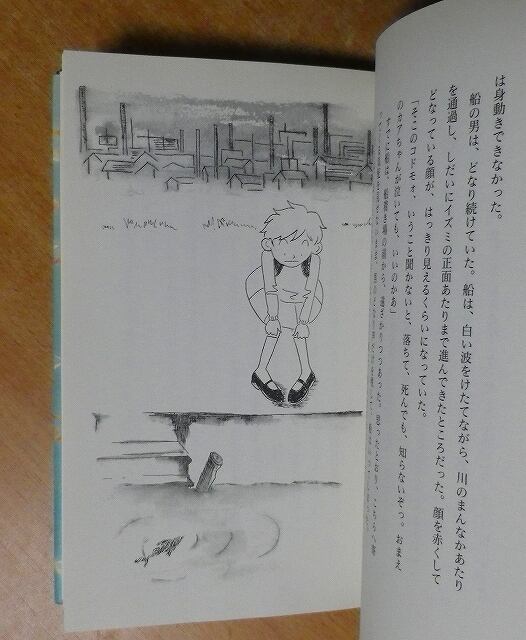 は身動きできなかった。
船の男は、どなり続けていた。船は、白い波をけたてながら、川のまんなかあたり
を通過し、しだいにイズミの正面あたりまで進んできたところだった。顔を赤くして
どなっている顔が、はっきり見えるくらいになっていた。
「そこのコドモォ、いうこと聞かないと、落ちて、死んでも、知らないぞっ。おまえ
のカアちゃんが泣いても、いいのかあ」
すでに船は、船着き場の前から、遠ざかりつつあった。思ったとおり、こちらへ寄